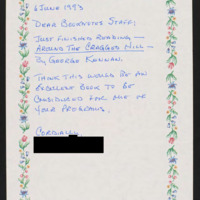 6 JUNE 1993
DEAR BOOKNOTES STAFF;
JUST FINISHED READING —
AROUND THE CRAGGED HILL —
BY GEORGE KENNAN.
THINK THIS WOULD BE AN
EXCELLENT BOOK TO BE
CONSIDERED FOR ONE OF
YOUR PROGRAMS.
CORDIALLY